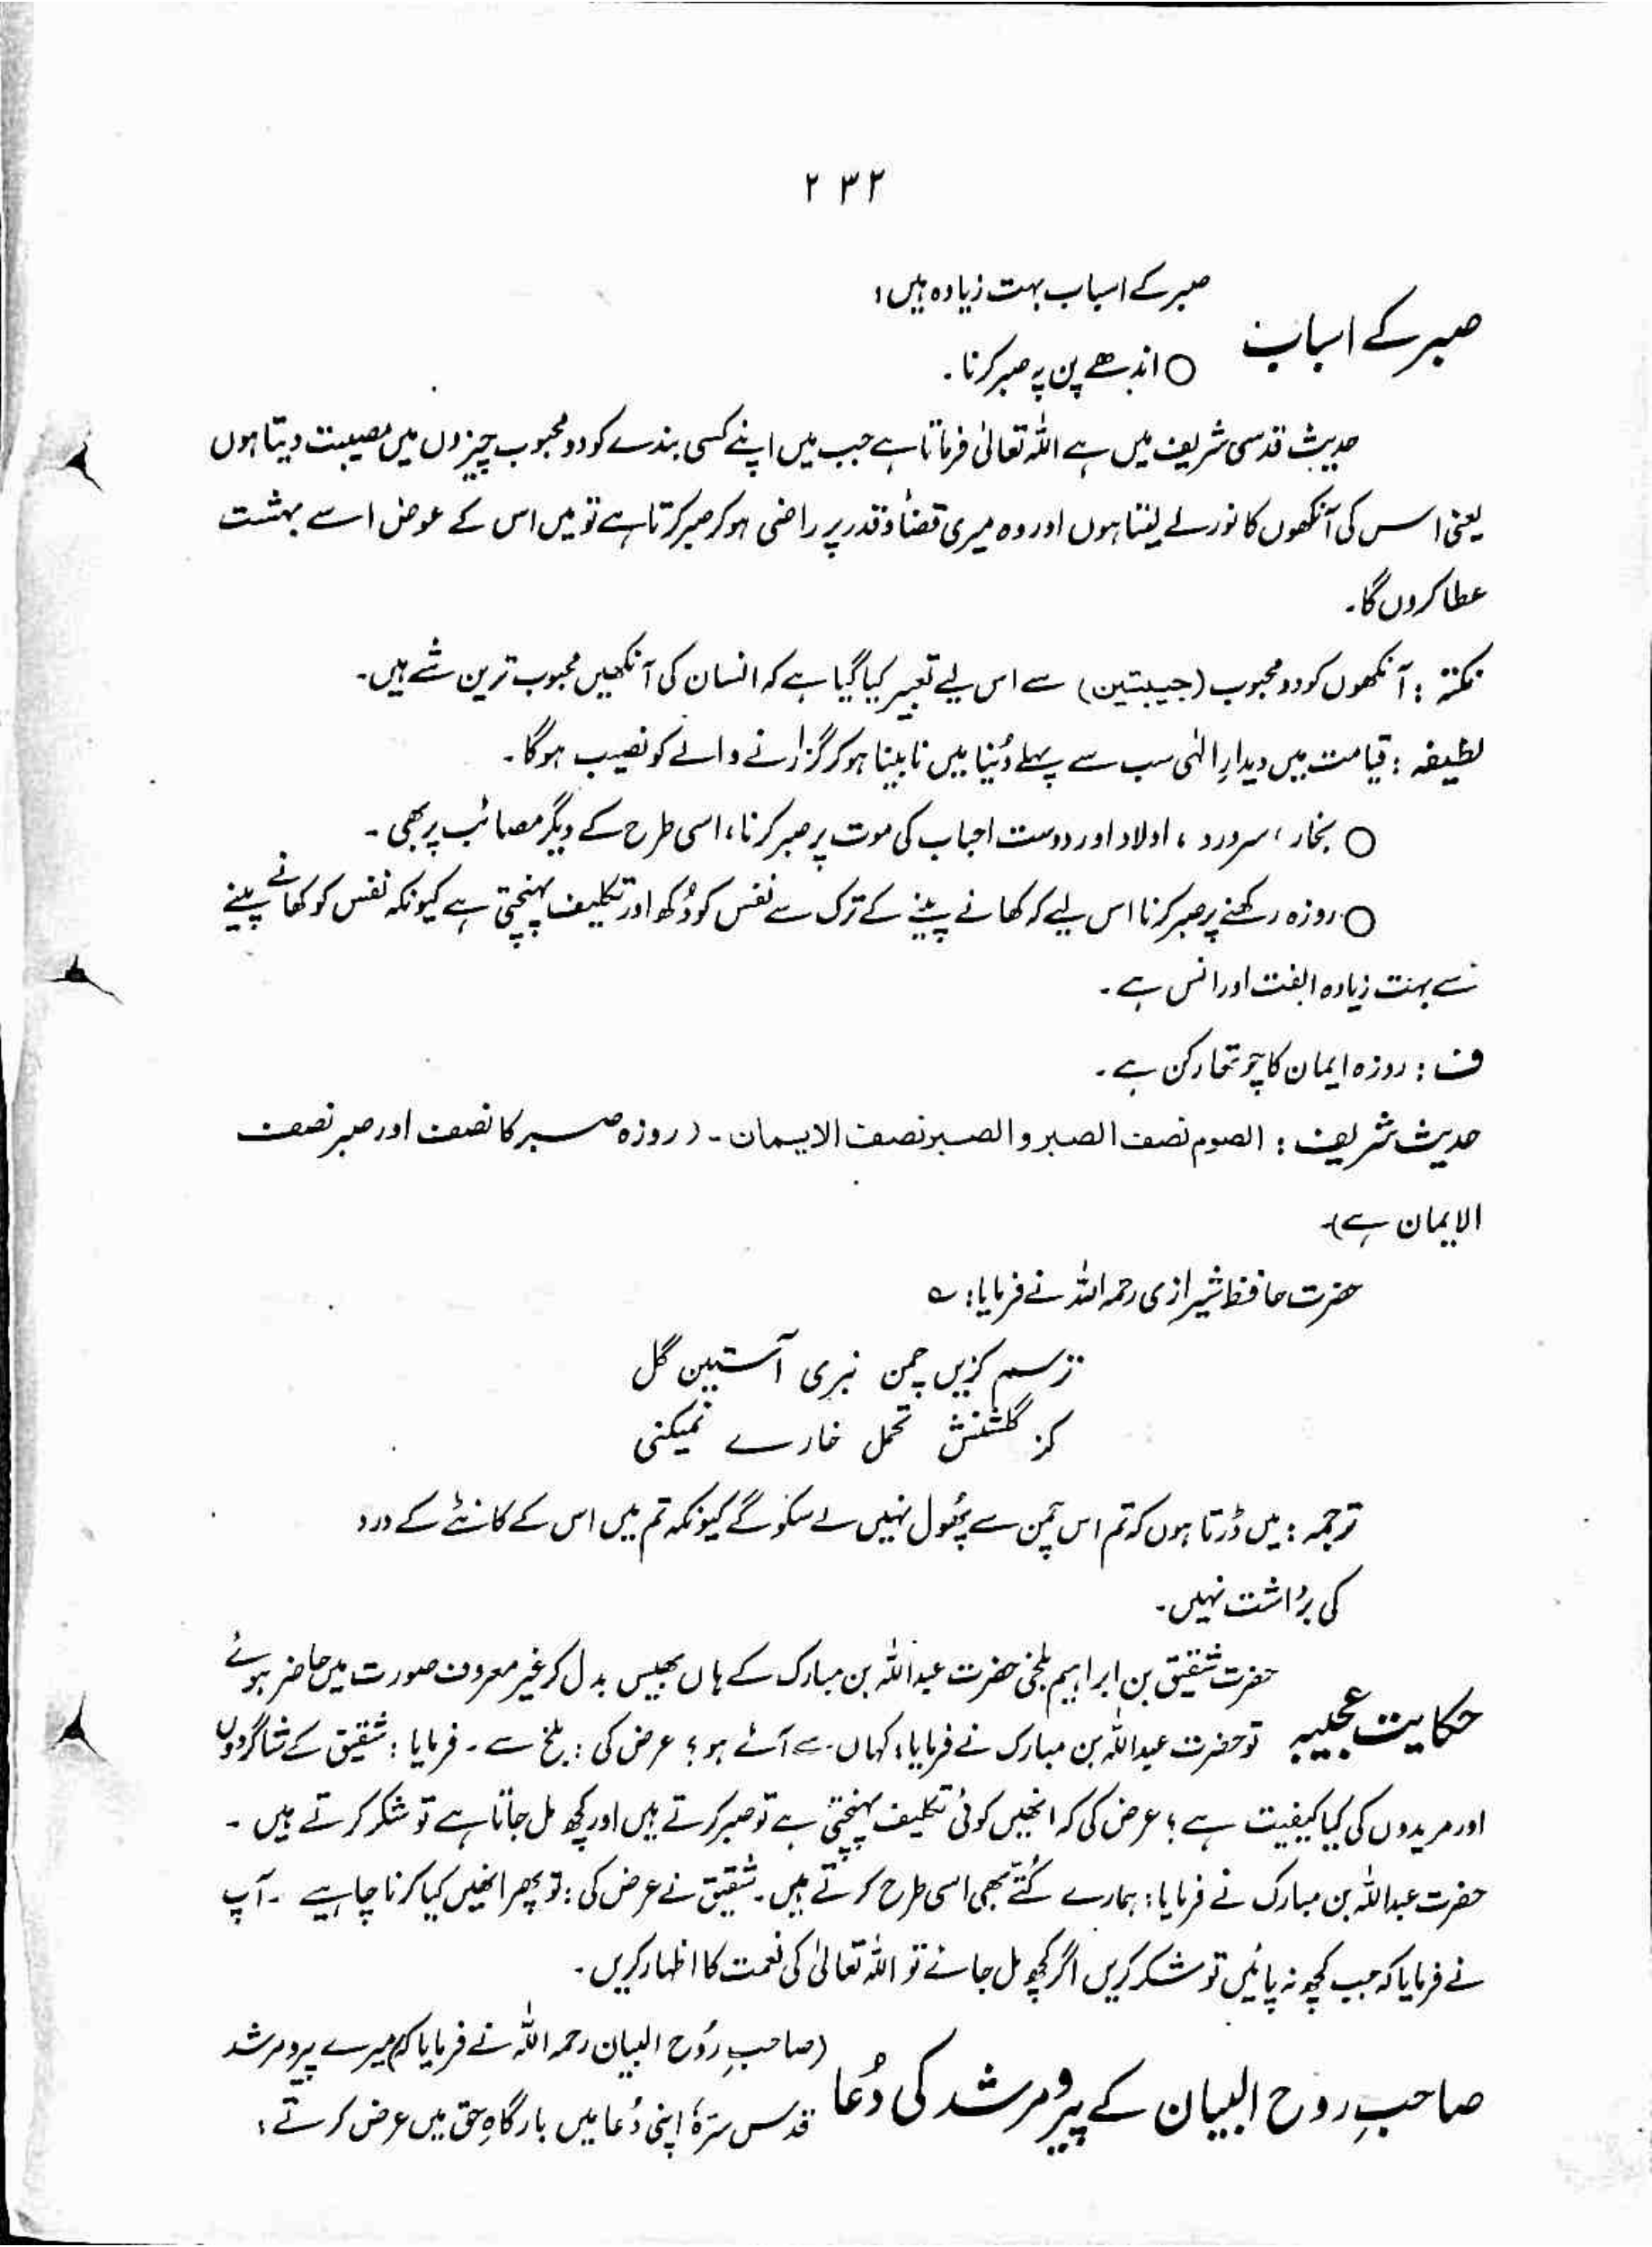 ۲۳۲
صبر کے اسباب
صبر کے اسباب بہت زیادہ ہیں:
○ اندھے پن پہ صبر کرنا۔
حدیث قدسی شریف میں ہے اللہ تعالیٰ فرماتا ہے جب میں اپنے کسی بندے کو دو محبوب چیزوں میں مصیبت دیتا ہوں
یعنی اس کی آنکھوں کا نور لے لیتا ہوں اور وہ میری قضأ و قدر پر راضی ہو کر صبر کرتا ہے تو میں اس کے عوض اسے بہشت
عطا کروں گا۔
نکتہ : آنکھوں کو دو محبوب (حبیبتین) سے اس لیے تعبیر کیا گیا ہے کہ انسان کی آنکھیں محبوب ترین شے ہیں۔
لطیفہ : قیامت میں دیدارِ الٰہی سب سے پہلے دُنیا میں نابینا ہو کر گزارنے والے کو نصیب ہوگا۔
○ بخار، سردرد، اولاد اور دوست احباب کی موت پر صبر کرنا، اسی طرح کے دیگر مصائب پر بھی۔
○ روزہ رکھنے پر صبر کرنا اس لیے کہ کھانے پینے کے ترک سے نفس کو دُکھ اور تکلیف پہنچتی ہے کیونکہ نفس کو کھانے پینے
سے بہت زیادہ الفت اور انس ہے۔
ف : روزہ ایمان کا چوتھا رکن ہے۔
حدیث شریف : الصوم نصف الصبر و الصبر نصف الایمان۔ (روزہ صبر کا نصف اور صبر نصف
الایمان ہے)۔
حضرت حافظ شیرازی رحمہ اللہ نے فرمایا: ؎
ترسم کزیں چمن نبری آستین گل
کز گلشنش تحمل خارے نمیکنی
ترجمہ : میں ڈرتا ہوں کہ تم اس چمن سے پھُول نہیں لے سکو گے کیونکہ تم میں اس کے کانٹے کے درد
کی برداشت نہیں۔
حکایت عجیبہ
حضرت شقیق بن ابراہیم بلخی حضرت عبداللہ بن مبارک کے ہاں بھیس بدل کر غیر معروف صورت میں حاضر ہوئے
تو حضرت عبداللہ بن مبارک نے فرمایا: کہاں سے آئے ہو؟ عرض کی : بلخ سے۔ فرمایا : شقیق کے شاگردوں
اور مریدوں کی کیا کیفیت ہے؟ عرض کی کہ انھیں کوئی تکلیف پہنچتی ہے تو صبر کرتے ہیں اور کچھ مل جاتا ہے تو شکر کرتے ہیں۔
حضرت عبداللہ بن مبارک نے فرمایا : ہمارے کُتے بھی اسی طرح کرتے ہیں۔ شقیق نے عرض کی : تو پھر انھیں کیا کرنا چاہیے۔ آپ
نے فرمایا کہ جب کچھ نہ پائیں تو شکر کریں اگر کچھ مل جائے تو اللہ تعالیٰ کی نعمت کا اظہار کریں۔
صاحبِ روح البیان کے پیر و مرشد کی دُعا
(صاحبِ رُوح البیان رحمہ اللہ نے فرمایا کہ) میرے پیر و مرشد
قدس سرّہٗ اپنی دُعا میں بارگاہِ حق میں عرض کرتے :